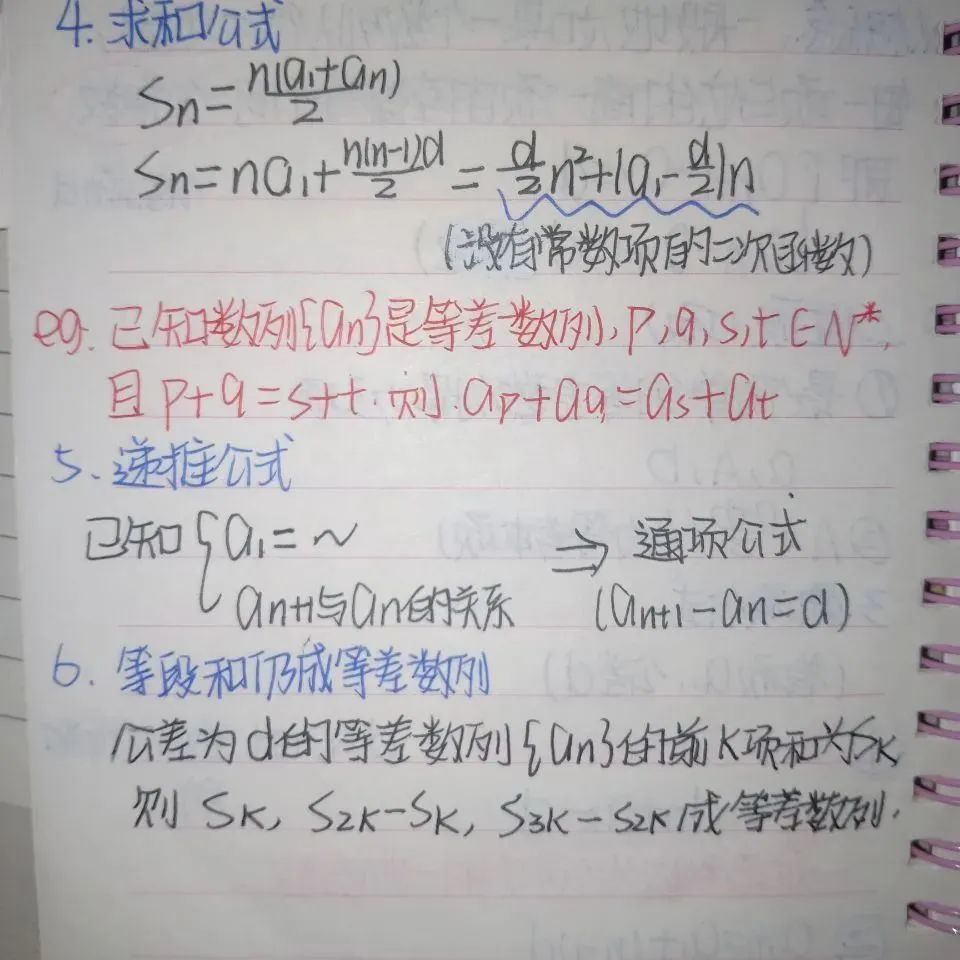 4. 求和公式
Sn=n(a₁+an)/2
Sn=na₁+n(n-1)d/2=d/2n²+(a₁-d/2)n
(没有常数项的二次函数)
eg. 已知数列{an}是等差数列,p,q,s,t∈N*,
且p+q=s+t.则.ap+aq=as+at
5、递推公式
已知{a₁=~ ⇒ 通项公式
an+1与an的关系 (an+1-an=d)
6. 等段和仍成等差数列
公差为d的等差数列{an}的前K项和为SK
则SK,S2K-SK,S3K-S2K成等差数列.